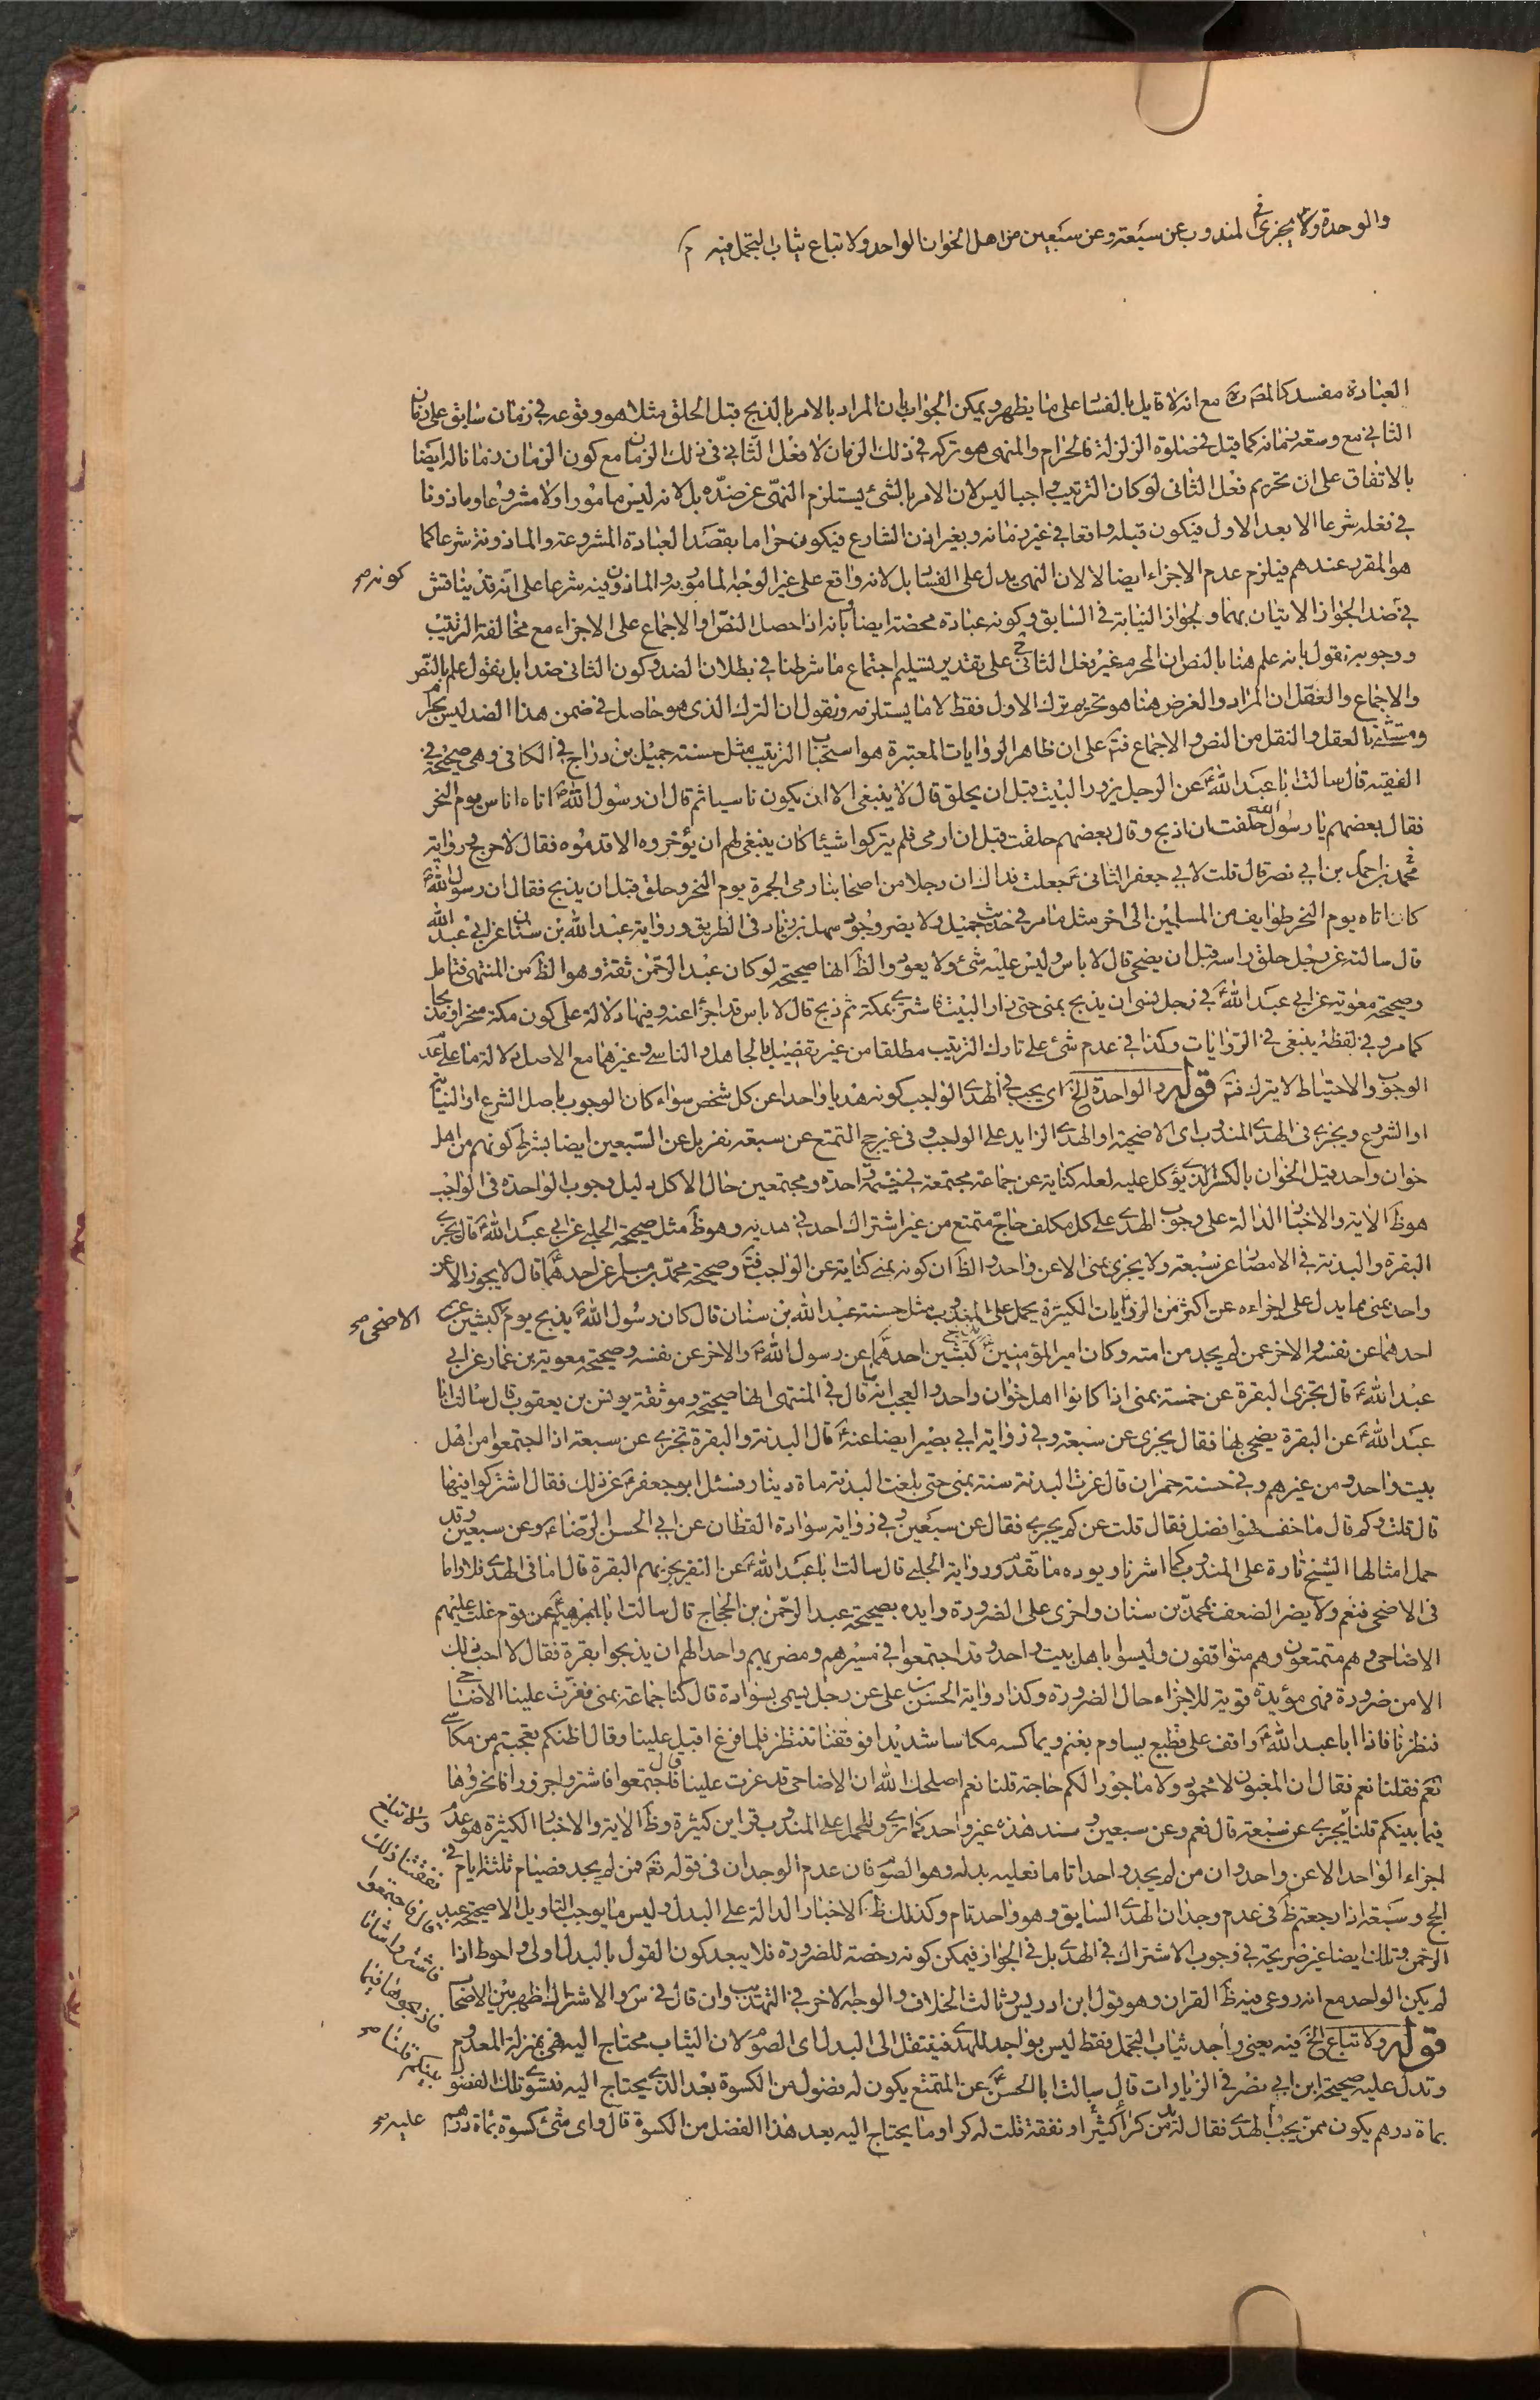 والوحدة ولا يجزى في المندوب عن سبعة وعن سبعين من اهل الخوان الواحد ولا تباع ثياب التجمل فيه م
العبادة مفسد كالمضرة مع انه لا قايل بالفساد على ما يظهر ويمكن الجواب بان المراد بالامر بالذبح قبل الحلق مثلا هو وقوعه في زمان سابق على زمان
الثاني مع وسعة زمانه كما قيل في صلوة الزلزلة فالحرام والمنهى هو تركه في ذلك الزمان لا فعل الثاني في ذلك الزمان مع كون الزمان زمانا له ايضا
بالاتفاق على ان تحريم فعل الثانى لو كان الترتيب واجبا ليس لان الامر بالشئ يستلزم النهى عن ضده بل لانه ليس مامورا ولا مشروعا وماذونا
في فعله شرعا الا بعد الاول فيكون قبله واقعا في غير زمانه وبغير اذن الشارع فيكون حراما بقصد العبادة المشروعة والماذونة شرعا كما
هو المقرر عندهم فيلزم عدم الاجزاء ايضا لا لان النهى يدل على الفساد بل لانه واقع على غير الوجه المامور به والماذون فيه شرعا على انه قد يناقش
كونه صح
في ضد الجواز الاتيان بهما ولجواز النيابة في السابق وكونه عبادة محضة ايضا وبانه اذا حصل النص او الاجماع على الاجزاء مع مخالفة الترتيب
ووجوبه نقول بانه علم هنا بالنص ان المحرم غير فعل الثاني على تقدير تسليم اجتماع ما شرطنا في بطلان الضد وكون الثانى ضدا بل نقول علم بالنص
والاجماع والعقل ان المراد والغرض هنا هو تحريم ترك الاول فقط لا ما يستلزمه ونقول ان الترك الذى هو حاصل في ضمن هذا الضد ليس بمحرم
ومستثنى بالعقل والنقل من النص والاجماع فتم على ان ظاهر الروايات المعتبرة هو استحباب الترتيب مثل حسنة جميل بن دراج في الكافى وهى صحيحة في
الفقيه قال سالت ابا عبد الله ع عن الرجل يزور البيت قبل ان يحلق قال لا ينبغى الا ان يكون ناسيا ثم قال ان رسول الله ص اتاه اناس يوم النحر
فقال بعضهم يا رسول الله حلقت ان اذبح وقال بعضهم حلقت قبل ان ارمى فلم يتركوا شيئا كان ينبغى لهم ان يؤخروه الا قدموه فقال لا حرج ورواية
محمد بن احمد بن ابي نصر قال قلت لابي جعفر الثانى ع جعلت فداك ان رجلا من اصحابنا رمى الجمرة يوم النحر وحلق قبل ان يذبح فقال ان رسول الله ص
كان اتاه يوم النحر طوايف من المسلمين الى اخر مثل ما مر في حديث جميل ولا يضر وجود سهل بن زياد في الطريق ورواية عبد الله بن سنان عن ابي عبد الله
قال سالته عن رجل حلق راسه قبل ان يضحى قال لا باس وليس عليه شئ ولا يعود والظ انها صحيحة لو كان عبد الرحمن ثقة وهو الظ من المنتهى فتامل
وصحيحة معوية عن ابي عبد الله ع في رجل نسى ان يذبح بمنى حتى زار البيت فاشترى بمكة ثم ذبح قال لا باس قد اجزا عنه وفيها دلالة على كون مكة منحرا
كما مر وفي لفظة ينبغى في الروايات وكذا في عدم شئ على تارك الترتيب مطلقا من غير تفصيل بالجاهل والناسى وغيرهما مع الاصل دلالة ما على عدم
الوجوب والاحتياط لا يترك فتم قوله والواحدة الخ اى يجب في الهدى الواجب كونه هديا واحدا عن كل شخص سواء كان الوجوب باصل الشرع او النيابة
او الشروع ويجزى في الهدى المندوب اى الاضحية او الهدى الزايد على الواجب وفي غير حج التمتع عن سبعة نفر بل عن السبعين ايضا بشرط كونهم من اهل
خوان واحد قيل الخوان بالكسر الذى يؤكل عليه لعله كناية عن جماعة مجتمعة في خيمة واحدة ومجتمعين حال الاكل دليل وجوب الواحدة في الواجب
هو ظ الاية والاخبار الدالة على وجوب الهدى على كل مكلف حاج متمتع من غير اشتراك احد في هديه وهو ظ مثل صحيحة الحلبي عن ابي عبد الله ع قال تجزى
البقرة والبدنة في الامصار عن سبعة ولا يجزى بمنى الا عن واحد والظ ان كونه بمنى كناية عن الواجب فتم وصحيحة محمد بن مسلم عن احدهما ع قال لا يجوز الا عن
واحد بمنى مما يدل على اجزاءه عن اكثر من الروايات الكثيرة يحمل على المندوب مثل حسنة عبد الله بن سنان قال كان رسول الله ص يذبح يوم كبشين عن
الاضحى صح
احدهما عن نفسه والاخر عمن لم يجد من امته وكان امير المؤمنين ع يذبح كبشين احدهما عن رسول الله ص والاخر عن نفسه وصحيحة معوية بن عمار عن ابي
عبد الله ع قال تجزى البقرة عن خمسة بمنى اذا كانوا اهل خوان واحد والعجب انه ما قال في المنتهى انها صحيحة وموثقة يونس بن يعقوب قال سالت ابا
عبد الله ع عن البقرة يضحى بها فقال يجزى عن سبعة وفي رواية ابي بصير ايضا عنه ع قال البدنة والبقرة تجزى عن سبعة اذا اجتمعوا من اهل
بيت واحد ومن غيرهم وفي حسنة حمران قال عزت البدنة سنة بمنى حتى بلغت البدنة ماة دينار فسئل ابو جعفر ع عن ذلك فقال اشتركوا فيها
قال قلت وكم قال ما خف فهو افضل فقال قلت عن كم يجزى فقال عن سبعين وفي رواية سوادة القطان عن ابي الحسن الرضا ع وعن سبعين وقد
حمل امثالها الشيخ تارة على المندوب كما اشرنا ويؤيده ما تقدم ورواية الحلبي قال سالت ابا عبد الله ع عن النفر يجزيهم البقرة قال اما في الهدى فلا واما
في الاضحى فنعم ولا يضر الضعف بمحمد بن سنان واخرى على الضرورة وايده بصحيحة عبد الرحمن بن الحجاج قال سالت ابا ابراهيم ع عن قوم غلت عليهم
الاضاحى وهم متمتعون وهم متوافقون وليسوا باهل بيت واحد وقد اجتمعوا في مسيرهم ومضربهم واحد الهم ان يذبحوا بقرة فقال لا احب ذلك
الا من ضرورة فهى مؤيدة قوية للاجزاء حال الضرورة وكذا رواية الحسن بن على عن رجل يسمى بسوادة قال كنا جماعة بمنى فعزت علينا الاضاحى
فنظرنا فاذا ابا عبد الله ع واقف على قطيع يساوم بغنم ويماكسه مكاسا شديدا فوقفنا ننتظر فلما فرغ اقبل علينا وقال اظنكم تعجبتم من مكاسى
نعم فقلنا نعم فقال ان المغبون لا محمود ولا ماجور الكم حاجة قلنا نعم اصلحك الله ان الاضاحى قد عزت علينا قال فاجتمعوا فاشتروا جزورا فانحروها
فيما بينكم قلنا يجزى عن سبعة قال نعم وعن سبعين وسند هذه غير واحد كما ترى وللحمل على المندوب قراين كثيرة وظ الاية والاخبار الكثيرة هو عدم
اجزاء الواحد الا عن واحد وان من لم يجد واحدا تاما فعليه بدله وهو الصوم فان عدم الوجدان في قوله تعم فمن لم يجد فصيام ثلثة ايام في
الحج وسبعة اذا رجعتم ظ في عدم وجدان الهدى السابق وهو واحد تام وكذلك ظ الاخبار الدالة على البدل وليس ما يوجب التاويل الا صحيحة عبد
الرحمن وتلك ايضا غير صريحة في وجوب الاشتراك في الهدى بل في الجواز فيمكن كونه رخصة للضرورة فلا يبعد كون القول بالبدل اولى واحوط اذا
لم يكن الواحد مع انه روعى فيه ظ القران وهو قول ابن ادريس وثالث الخلاف والوجه الاخر في التهذيب وان قال في س والاشتراك اظهر بين الاصحاب
قوله ولا تباع الخ فيه يعنى واجد ثياب التجمل فقط ليس بواجد للهدى فينتقل الى البدل اى الصوم لان الثياب محتاج اليه فهى بمنزلة المعدوم
وتدل عليه صحيحة ابن ابي نصر في الزيارات قال سالت ابا الحسن ع عن المتمتع يكون له فضول من الكسوة بعد الذى يحتاج اليه فتسوى تلك الفضول
بماة درهم يكون ممن يجب الهدى فقال له بد من كراء كثير او نفقة قلت له كراء وما يحتاج اليه بعد هذا الفضل من الكسوة قال واى شئ كسوة بماة درهم
عليه صح